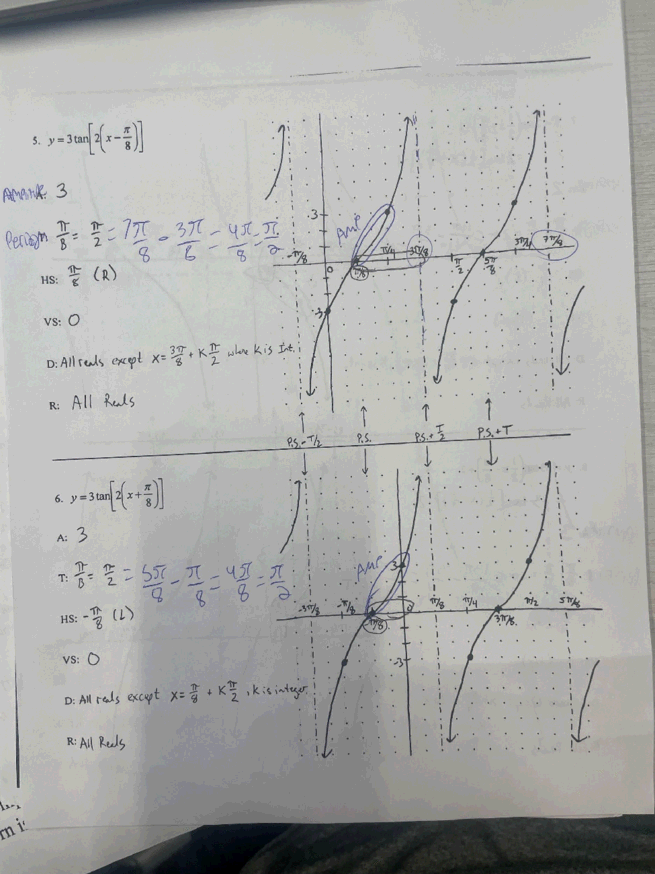 5. y = 3 tan[2(x − π/8)]
A: 3
π/B = π/2 = 7π/8 - 3π/8 = 4π/8 = π/2
HS: π/8 (R)
VS: 0
D: All reals except x = 3π/8 + K π/2 where K is Int.
R: All Reals
AMP
3
-3
0
-π/8 π/8 π/4 3π/8 π/2 5π/8 3π/4 7π/8
P.S. - T/2 P.S. P.S. + T/2 P.S. + T
6. y = 3 tan[2(x + π/8)]
A: 3
T: π/B = π/2 = 5π/8 - π/8 = 4π/8 = π/2
HS: -π/8 (L)
VS: 0
D: All reals except x = π/8 + K π/2, K is integer
R: All Reals
AMP
3
-3
0
-3π/8 -π/8 -π/8 π/8 π/4 3π/8 π/2 5π/8